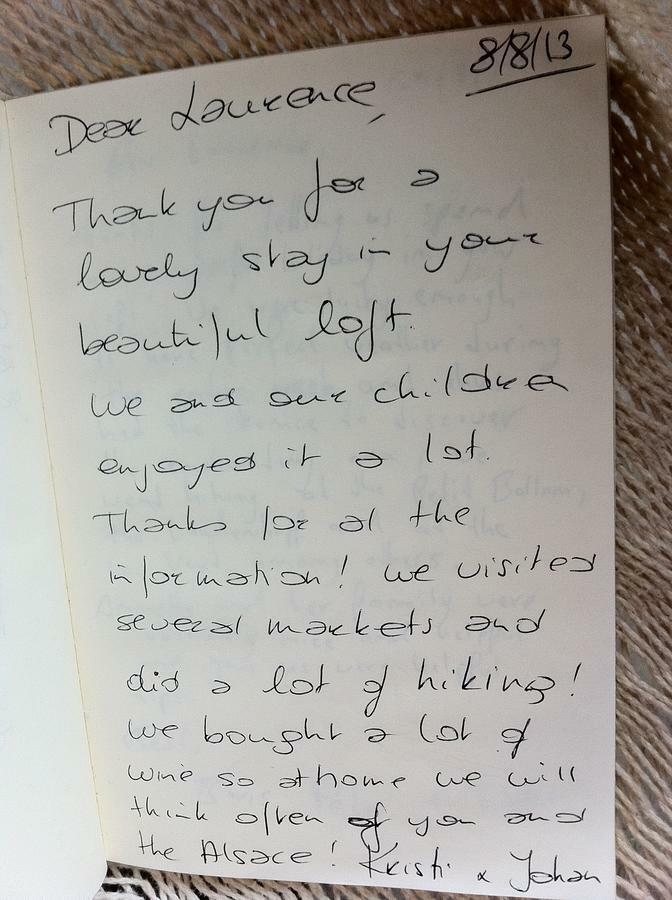 8/8/13
Dear Laurence,
Thank you for a
lovely stay in your
beautiful loft.
We and our children
enjoyed it a lot.
Thanks for al the
information! We visited
several markets and
did a lot of hiking!
We bought a lot of
wine so athome we will
think often of you and
the Alsace! Kristi & Johan